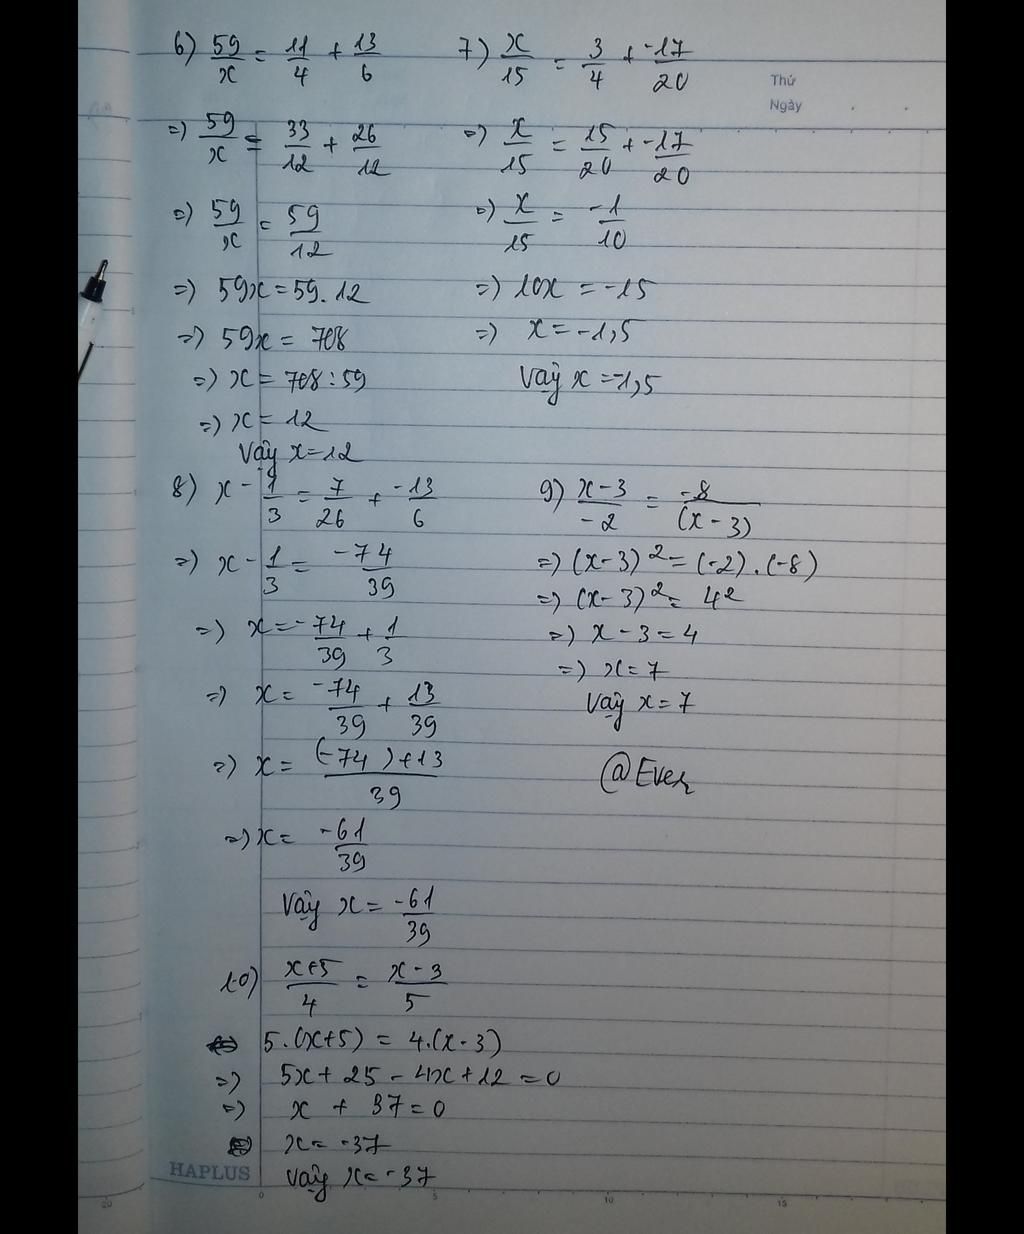 6) 59/x = 11/4 + 13/6
=) 59/x = 33/12 + 26/12
=) 59/x = 59/12
=) 59x = 59.12
=) 59x = 708
=) x = 708:59
=) x = 12
Vậy x=12
7) x/15 = 3/4 + -17/20
Thứ
Ngày
=) x/15 = 15/20 + -17/20
=) x/15 = -1/10
=) 10x = -15
=) x = -1,5
Vậy x = -1,5
8) x - 1/3 = 7/26 + -13/6
=) x - 1/3 = -74/39
=) x = -74/39 + 1/3
=) x = -74/39 + 13/39
=) x = (-74)+13/39
=) x = -61/39
Vậy x = -61/39
9) x-3/-2 = -8/(x-3)
=) (x-3)² = (-2).(-8)
=) (x-3)² = 4²
=) x-3 = 4
=) x = 7
Vậy x = 7
@Ever
10) x+5/4 = x-3/5
5.(x+5) = 4.(x-3)
=) 5x + 25 - 4x + 12 = 0
=) x + 37 = 0
x = -37
Vậy x = -37
HAPLUS
0 5 10 15